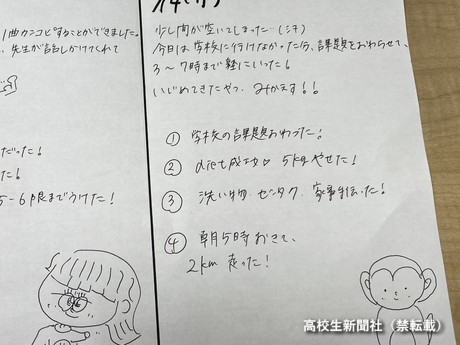 1曲カンコピすることができました。
、先生が話しかけてくれて
だった!
た!
5-6限までうけた!
少し間が空いてしまった…(汗)
今日は学校に行けなかった分、課題をおわらせて、
3〜7時まで塾にいった!
いじめてきたやつ、みかえす!!
① 学校の課題おわった!
② diet成功♡ 5kgやせた!
③ 洗い物、センタク、家事手伝った!
④ 朝5時おきて、
2km 走った!
高校生新聞社(禁転載)